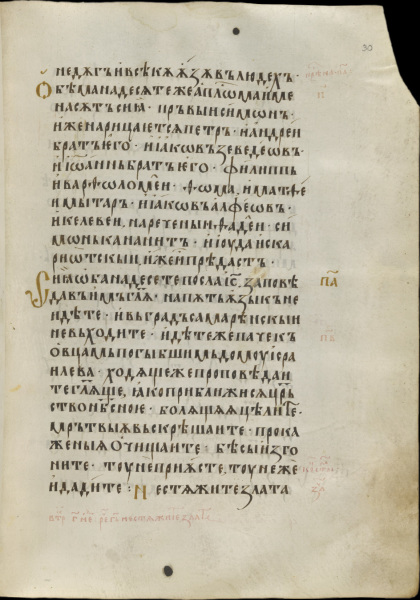 30
недѫгъ и всѣкѫ ѩзѫ въ людехъ ·
Обѣманадесѧте же ап҃лома имѧ
на сѫтъ сиꙗ · пръвыи сімѡнъ ·
иже нарицаетсѧ петръ · и андреи
братъ ѥго · иꙗковъ зеведеѡвъ ·
и іѡаннь братъ ѥго · филиппь
и варѳоломеи · ѳѡма, и матѳе
и мытаръ · иꙗковъ алфеѡвъ ·
и келевеи, нареченыи ѳадеи · си
мѡнь кананитъ · и июда иска
риѡтскыи, иже и прѣдастъ ·
Сиѧ ѡбанадесете посла іс҃, запове
давъ имъ гл҃ѧ · на пѫть ѩзыкъ не
идѣте · и въ градъ самарѣнскыи
не въходите · идѣте же паче къ
овцамъ погыбшимь домоу ісра
илева · ходѧще же проповѣдаи
те гл҃ѧще, ꙗко приближисѧ цр҃ь
ство нб҃сноѥ · болѧщѧѧ цѣлите ·
мрътвыѧ въскрѣшаите · прока
женыѧ очищаите · бѣсы изго
ните · тоуне приѧсте, тоуне же
и дадите : Не стѧжите злата
п҃а